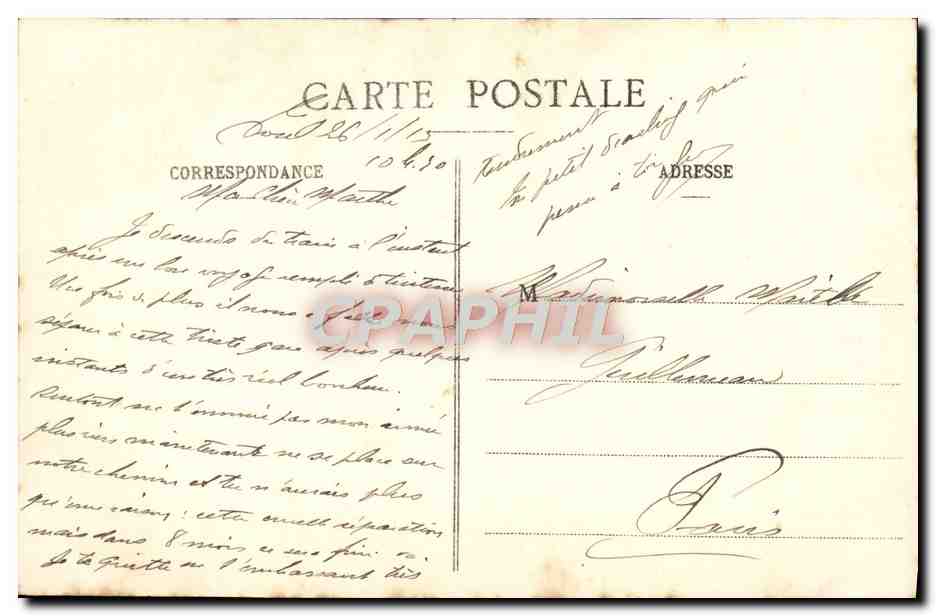 CARTE POSTALE
26/1/13
10 h. 30
CORRESPONDANCE
Ma chère Marthe
Je descends du train à l'instant
après un bon voyage rempli
Une fois de plus il nous a fallu nous
séparer à cette triste gare après quelques
instants d'un très réel bonheur.
Surtout ne t'ennuie pas mon aimée
plusieurs maintenant ne se place sur
notre chemin et tu n'aurais plus
qu'une raison : cette cruelle séparation
mais dans 8 mois ce sera fini
Je te quitte en t'embrassant très
tendrement
petit qui
pense à toi
ADRESSE
Mademoiselle Marthe
Guillemeau
Paris
CPAPHIL